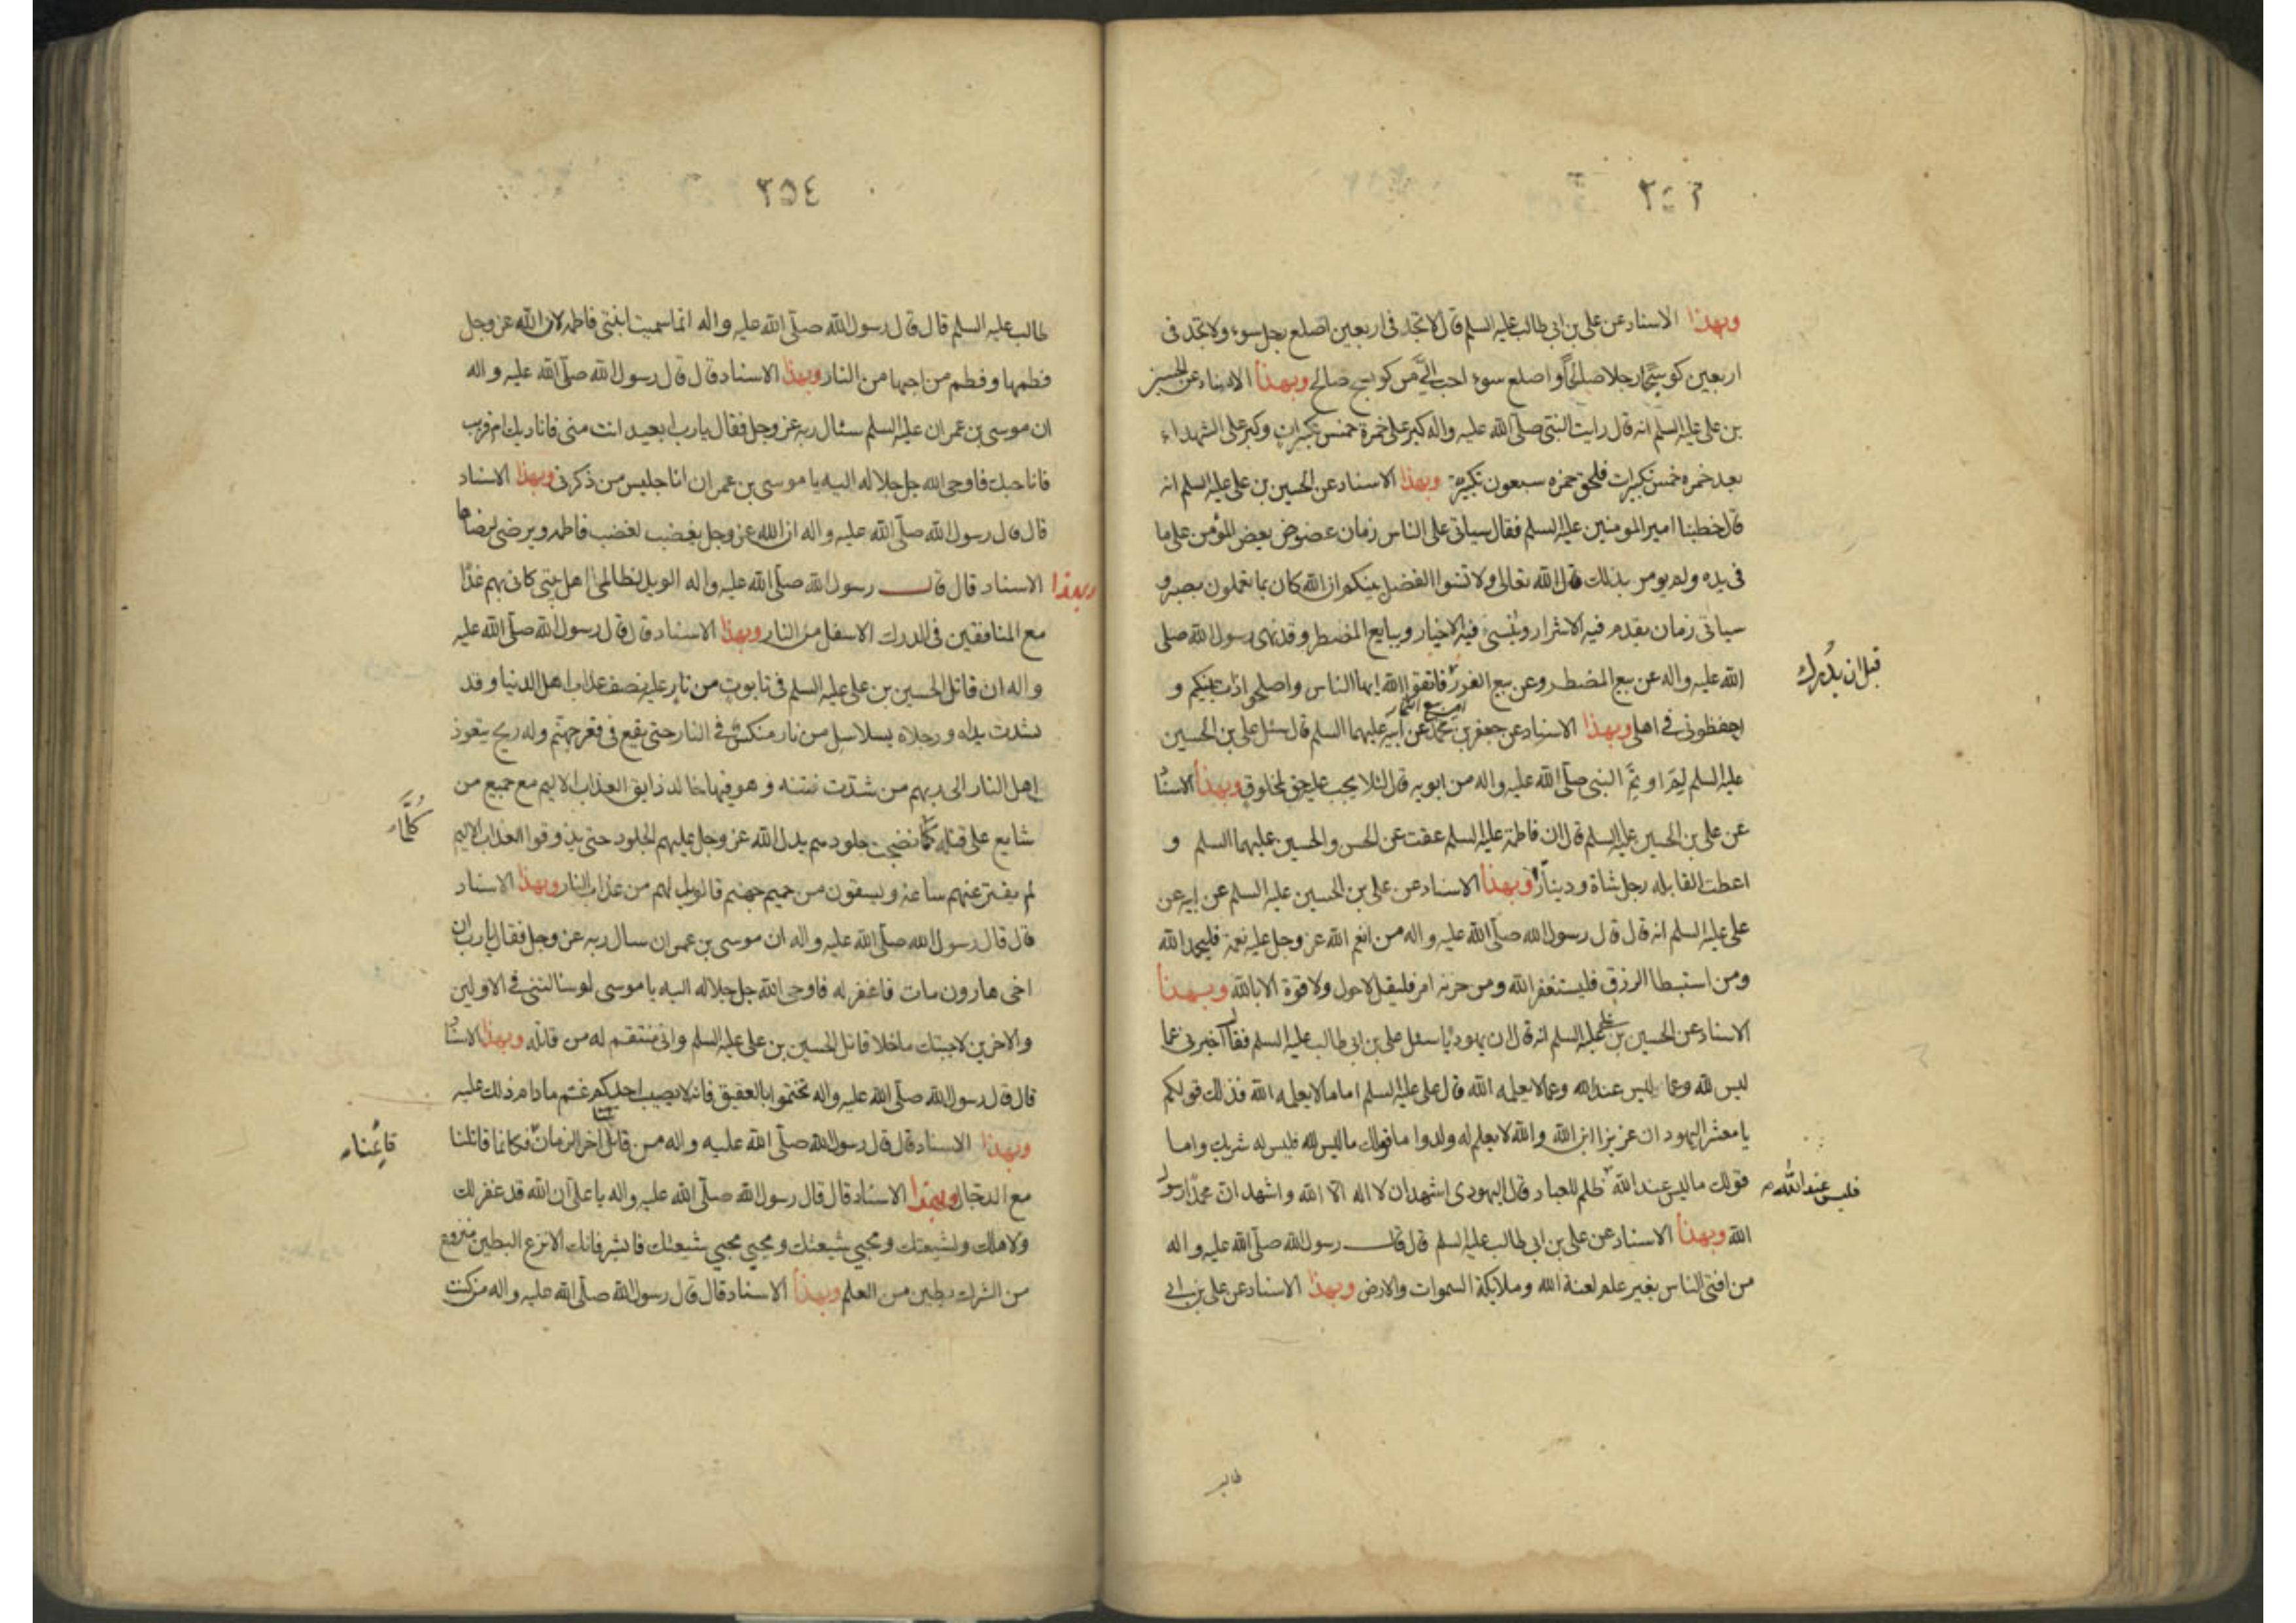 ٣٥٣
وبهذا الاسناد عن علی بن ابی طالب علیه السلم قال لا تجد فی اربعین اصلع رجل سوء ولا تجد فی
اربعین کوسجًا رجلا صالحًا و اصلع سوء احب الیّ من کوسج صالح وبهذا الاسناد عن الحسین
بن علی علیه السلم انه قال رایت النبی صلّی الله علیه واله کبر علی حمزة خمس تکبیرات وکبر علی الشهداء
بعد حمزه خمس تکبیرات فلحق حمزه سبعون تکبیرة وبهذا الاسناد عن الحسین بن علی علیه السلم انه
قال خطبنا امیر المومنین علیه السلم فقال سیاتی علی الناس زمان عضوض یعض المؤمن علی ما
فی یده ولم یومر بذلک قال الله تعالی ولا تنسوا الفضل بینکم ان الله کان بما تعملون بصیر و
سیاتی زمان یقدم فیه الاشرار وینسی فیه الاخیار ویبایع المضطر وقد نهی رسول الله صلی
الله علیه واله عن بیع المضطر وعن بیع الغرر فاتقوا الله ایها الناس واصلحوا ذات بینکم و
قبل ان یدرک
وعن بیع الثمار
احفظونی فی اهلی وبهذا الاسناد عن جعفر بن محمد عن ابیه علیهما السلم قال سئل علی بن الحسین
علیه السلم لِمَ اوتم النبی صلّی الله علیه واله من ابویه قال لئلا یجب علیه حق لمخلوق وبهذا الاسناد
عن علی بن الحسین علیه السلم قال ان فاطمة علیها السلم عقت عن الحسن والحسین علیهما السلم و
اعطت القابله رجل شاة و دینارًا وبهذا الاسناد عن علی بن الحسین علیه السلم عن ابیه عن
علی علیه السلم انه قال قال رسول الله صلّی الله علیه واله من انعم الله عز وجل علیه نعمة فلیحمد الله
ومن استبطا الرزق فلیستغفر الله ومن حزنه امر فلیقل لاحول ولا قوة الا بالله وبهذا
الاسناد عن الحسین بن علی علیه السلم انه قال ان یهودیًا سئل علی بن ابی طالب علیه السلم فقال اخبرنی عما
لیس لله وعما لیس عند الله وعما لا یعلمه الله قال علی علیه السلم اما ما لا یعلمه الله فذلک قولکم
یا معشر الیهود ان عزیزا ابن الله والله لا یعلم له ولدا واما قولک ما لیس لله فلیس له شریک واما
قولک ما لیس عند الله ظلم للعباد قال الیهودی اشهد ان لا اله الا الله واشهد ان محمدًا رسول
فلیس عند الله
الله وبهذا الاسناد عن علی بن ابی طالب علیه السلم قال قال رسول الله صلّی الله علیه واله
من افتی الناس بغیر علم لعنة الله وملایکة السموات والارض وبهذا الاسناد عن علی بن ابی
طالب
٣٥٤
طالب علیه السلم قال قال رسول الله صلّی الله علیه واله انما سمیت ابنتی فاطمه لان الله عز وجل
فطمها وفطم من احبها من النار وبهذا الاسناد قال قال رسول الله صلّی الله علیه واله
ان موسی بن عمران علیه السلم سئال ربه عز وجل فقال یا رب ابعید انت منی فانادیک ام قریب
فاناجیک فاوحی الله جل جلاله الیه یا موسی بن عمران انا جلیس من ذکرنی وبهذا الاسناد
قال قال رسول الله صلّی الله علیه واله ان الله عز وجل یغضب لغضب فاطمه ویرضی لرضاها
وبهذا الاسناد قال قال رسول الله صلّی الله علیه واله الویل لظالمی اهل بیتی کانی بهم غدًا
مع المنافقین فی الدرک الاسفل من النار وبهذا الاسناد قال قال رسول الله صلّی الله علیه
واله ان قاتل الحسین بن علی علیه السلم فی تابوت من نار علیه نصف عذاب اهل الدنیا وقد
شدت یداه ورجلاه بسلاسل من نار منکس فی النار حتی یقع فی قعر جهنم وله ریح یتعوذ
اهل النار الی ربهم من شدت نتنه وهو فیها خالد ذایق العذاب الالیم مع جمیع من
شایع علی قتله کلما نضجت جلودهم بدل الله عز وجل علیهم الجلود حتی یذوقوا العذاب الالیم
کُلَّما
لم یفتر عنهم ساعة ویسقون من حمیم جهنم فالویل لهم من عذاب النار وبهذا الاسناد
قال قال رسول الله صلّی الله علیه واله ان موسی بن عمران سال ربه عز وجل فقال یا رب ان
اخی هارون مات فاغفر له فاوحی الله جل جلاله الیه یا موسی لو سالتنی فی الاولین
والاخرین لاجبتک ماخلا قاتل الحسین بن علی علیه السلم وانی منتقم له من قاتله وبهذا الاسناد
قال قال رسول الله صلّی الله علیه واله تختموا بالعقیق فانه لا یصیب احدکم غم مادام ذلک علیه
وبهذا الاسناد قال قال رسول الله صلّی الله علیه واله من قاتلنا اخر الزمان فکانما قاتلنا
مع الدجال وبهذا الاسناد قال قال رسول الله صلّی الله علیه واله یا علی ان الله قد غفر لک
ولاهلک ولشیعتک ومحبی شیعتک ومحبی محبی شیعتک فابشر فانک الانزع البطین منزوع
من الشرک بطین من العلم وبهذا الاسناد قال قال رسول الله صلّی الله علیه واله من کنت